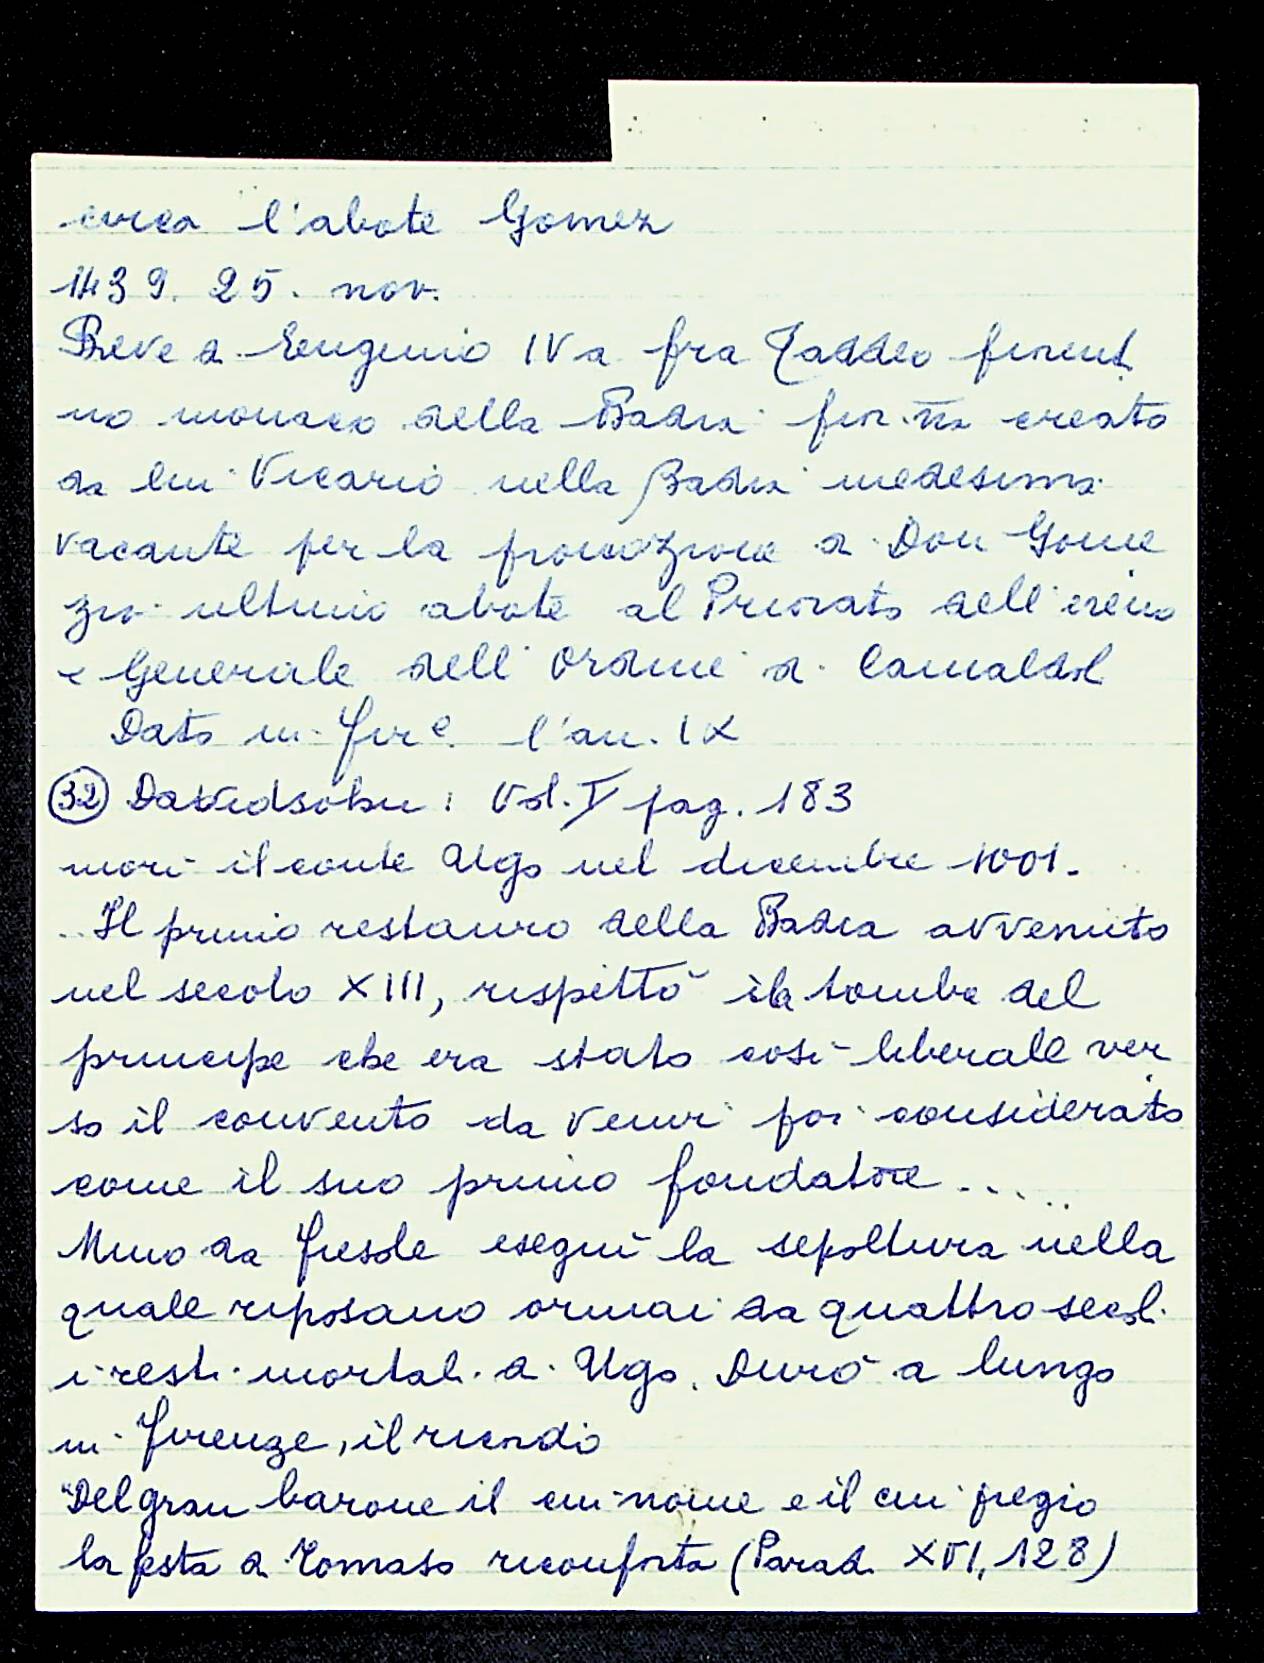 circa l'abate Gomez
1439. 25. nov.
Breve di Eugenio IV a fra Taddeo fiorent
no monaco della Badia fior.na creato
da lui Vicario nella Badia medesima
vacante per la promozione di Don Gome
zio ultimo abate al Priorato dell'eremo
e Generale dell'Ordine di Camaldol
Dato in Fire. l'an. IX
(32) Davidsohn: Vol. V pag. 183
morì il conte Ugo nel dicembre 1001.
..Il primo restauro della Badia avvenuto
nel secolo XIII, rispettò la tomba del
principe che era stato così liberale ver
so il convento da venir poi considerato
come il suo primo fondatore .....
Mino da Fiesole eseguì la sepoltura nella
quale riposano ormai da quattro secoli
i resti mortali di Ugo. Durò a lungo
in Firenze, il ricordo
"Del gran barone il cui nome e il cui pregio
la festa di Tomaso riconforta (Parad. XVI, 128)